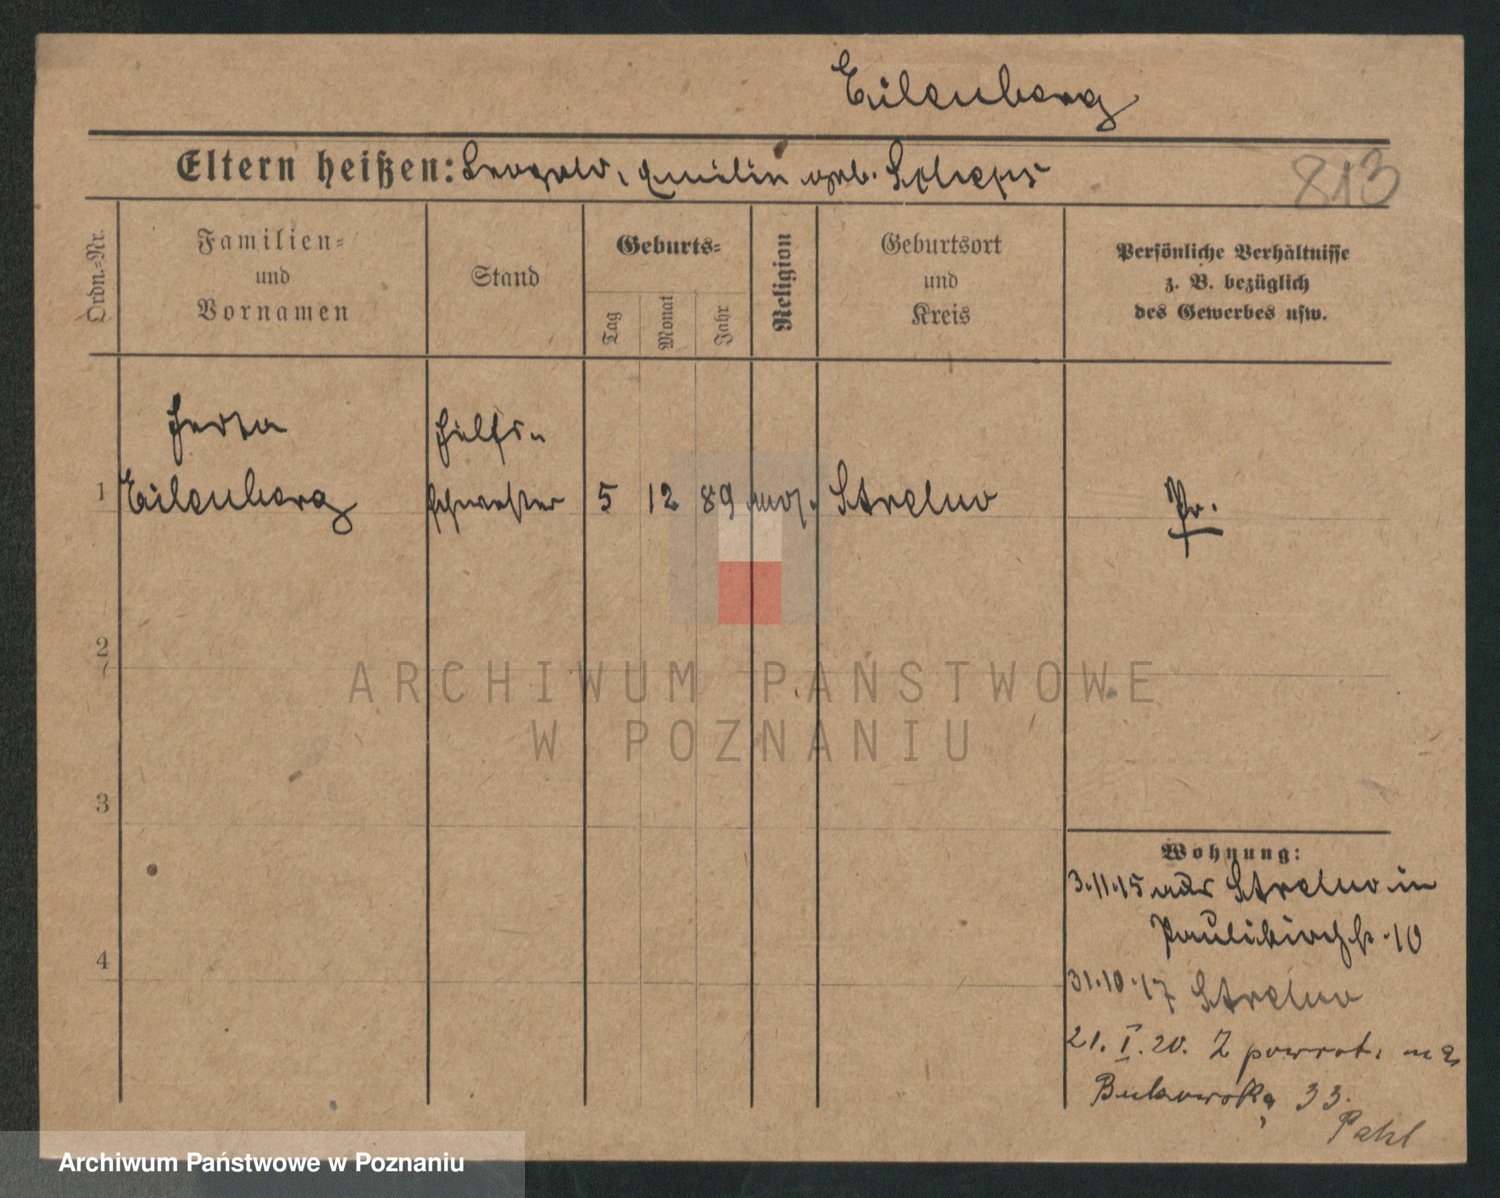 Eilenberg
Eltern heißen: Leopold, Emilie geb. Scheps
813
Ordn.-Nr.
Familien-
und
Vornamen
Stand
Geburts-
Tag
Monat
Jahr
Religion
Geburtsort
und
Kreis
Persönliche Verhältnisse
z. B. bezüglich
des Gewerbes usw.
Herta
Hilfs-
1 Eilenberg schwester 5 12 89 mos. Strelno Pr.
2
3
4
Wohnung:
3.11.15 aus Strelno in
Paulikirchstr. 10
31.10.17 Strelno
21. I. 20. Z powrot. na
Bukowską 33.
ARCHIWUM PAŃSTWOWE
W POZNANIU
Archiwum Państwowe w Poznaniu